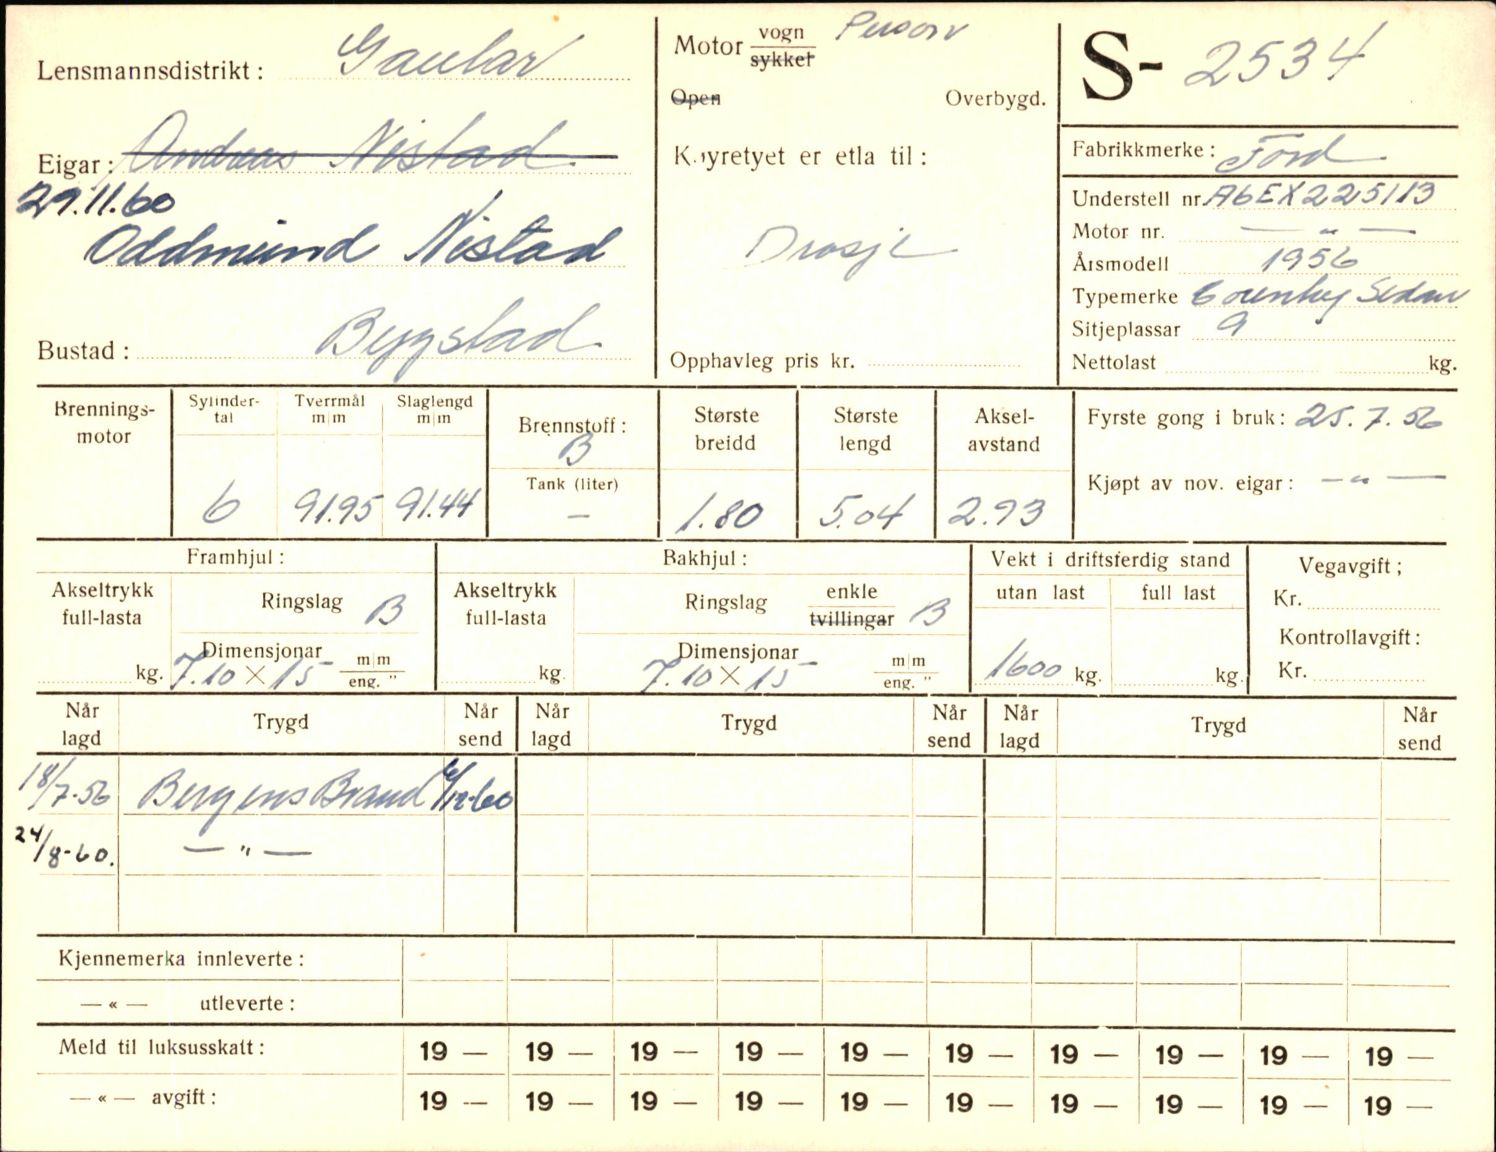 Lensmannsdistrikt: Gaular
Eigar: Andreas Nistad
29.11.60
Oddmund Nistad
Bustad: Bygstad
Motor vogn sykkel Person
Open Overbygd.
Køyretyet er etla til:
Drosje
Opphavleg pris kr.
S- 2534
Fabrikkmerke: Ford
Understell nr. A6EX225113
Motor nr. — " —
Årsmodell 1956
Typemerke Country Sedan
Sitjeplassar 9
Nettolast kg.
Brennings-motor
Sylinder-tal 6
Tverrmål m|m 91.95
Slaglengd m|m 91.44
Brennstoff: B
Tank (liter) —
Største breidd 1.80
Største lengd 5.04
Aksel-avstand 2.93
Fyrste gong i bruk: 25.7.56
Kjøpt av nov. eigar: — " —
Framhjul:
Akseltrykk full-lasta kg.
Ringslag B
Dimensjonar 7.10 × 15 m|m eng. "
Bakhjul:
Akseltrykk full-lasta kg.
Ringslag enkle tvillingar B
Dimensjonar 7.10 × 15 m|m eng. "
Vekt i driftsferdig stand
utan last 1600 kg.
full last kg.
Vegavgift;
Kr.
Kontrollavgift:
Kr.
Når lagd Trygd Når send Når lagd Trygd Når send Når lagd Trygd Når send
18/7-56 Bergens Brand 6/12-60
24/8-60. — " —
Kjennemerka innleverte:
— « — utleverte:
Meld til luksusskatt: 19 — 19 — 19 — 19 — 19 — 19 — 19 — 19 — 19 — 19 —
— « — avgift: 19 — 19 — 19 — 19 — 19 — 19 — 19 — 19 — 19 — 19 —